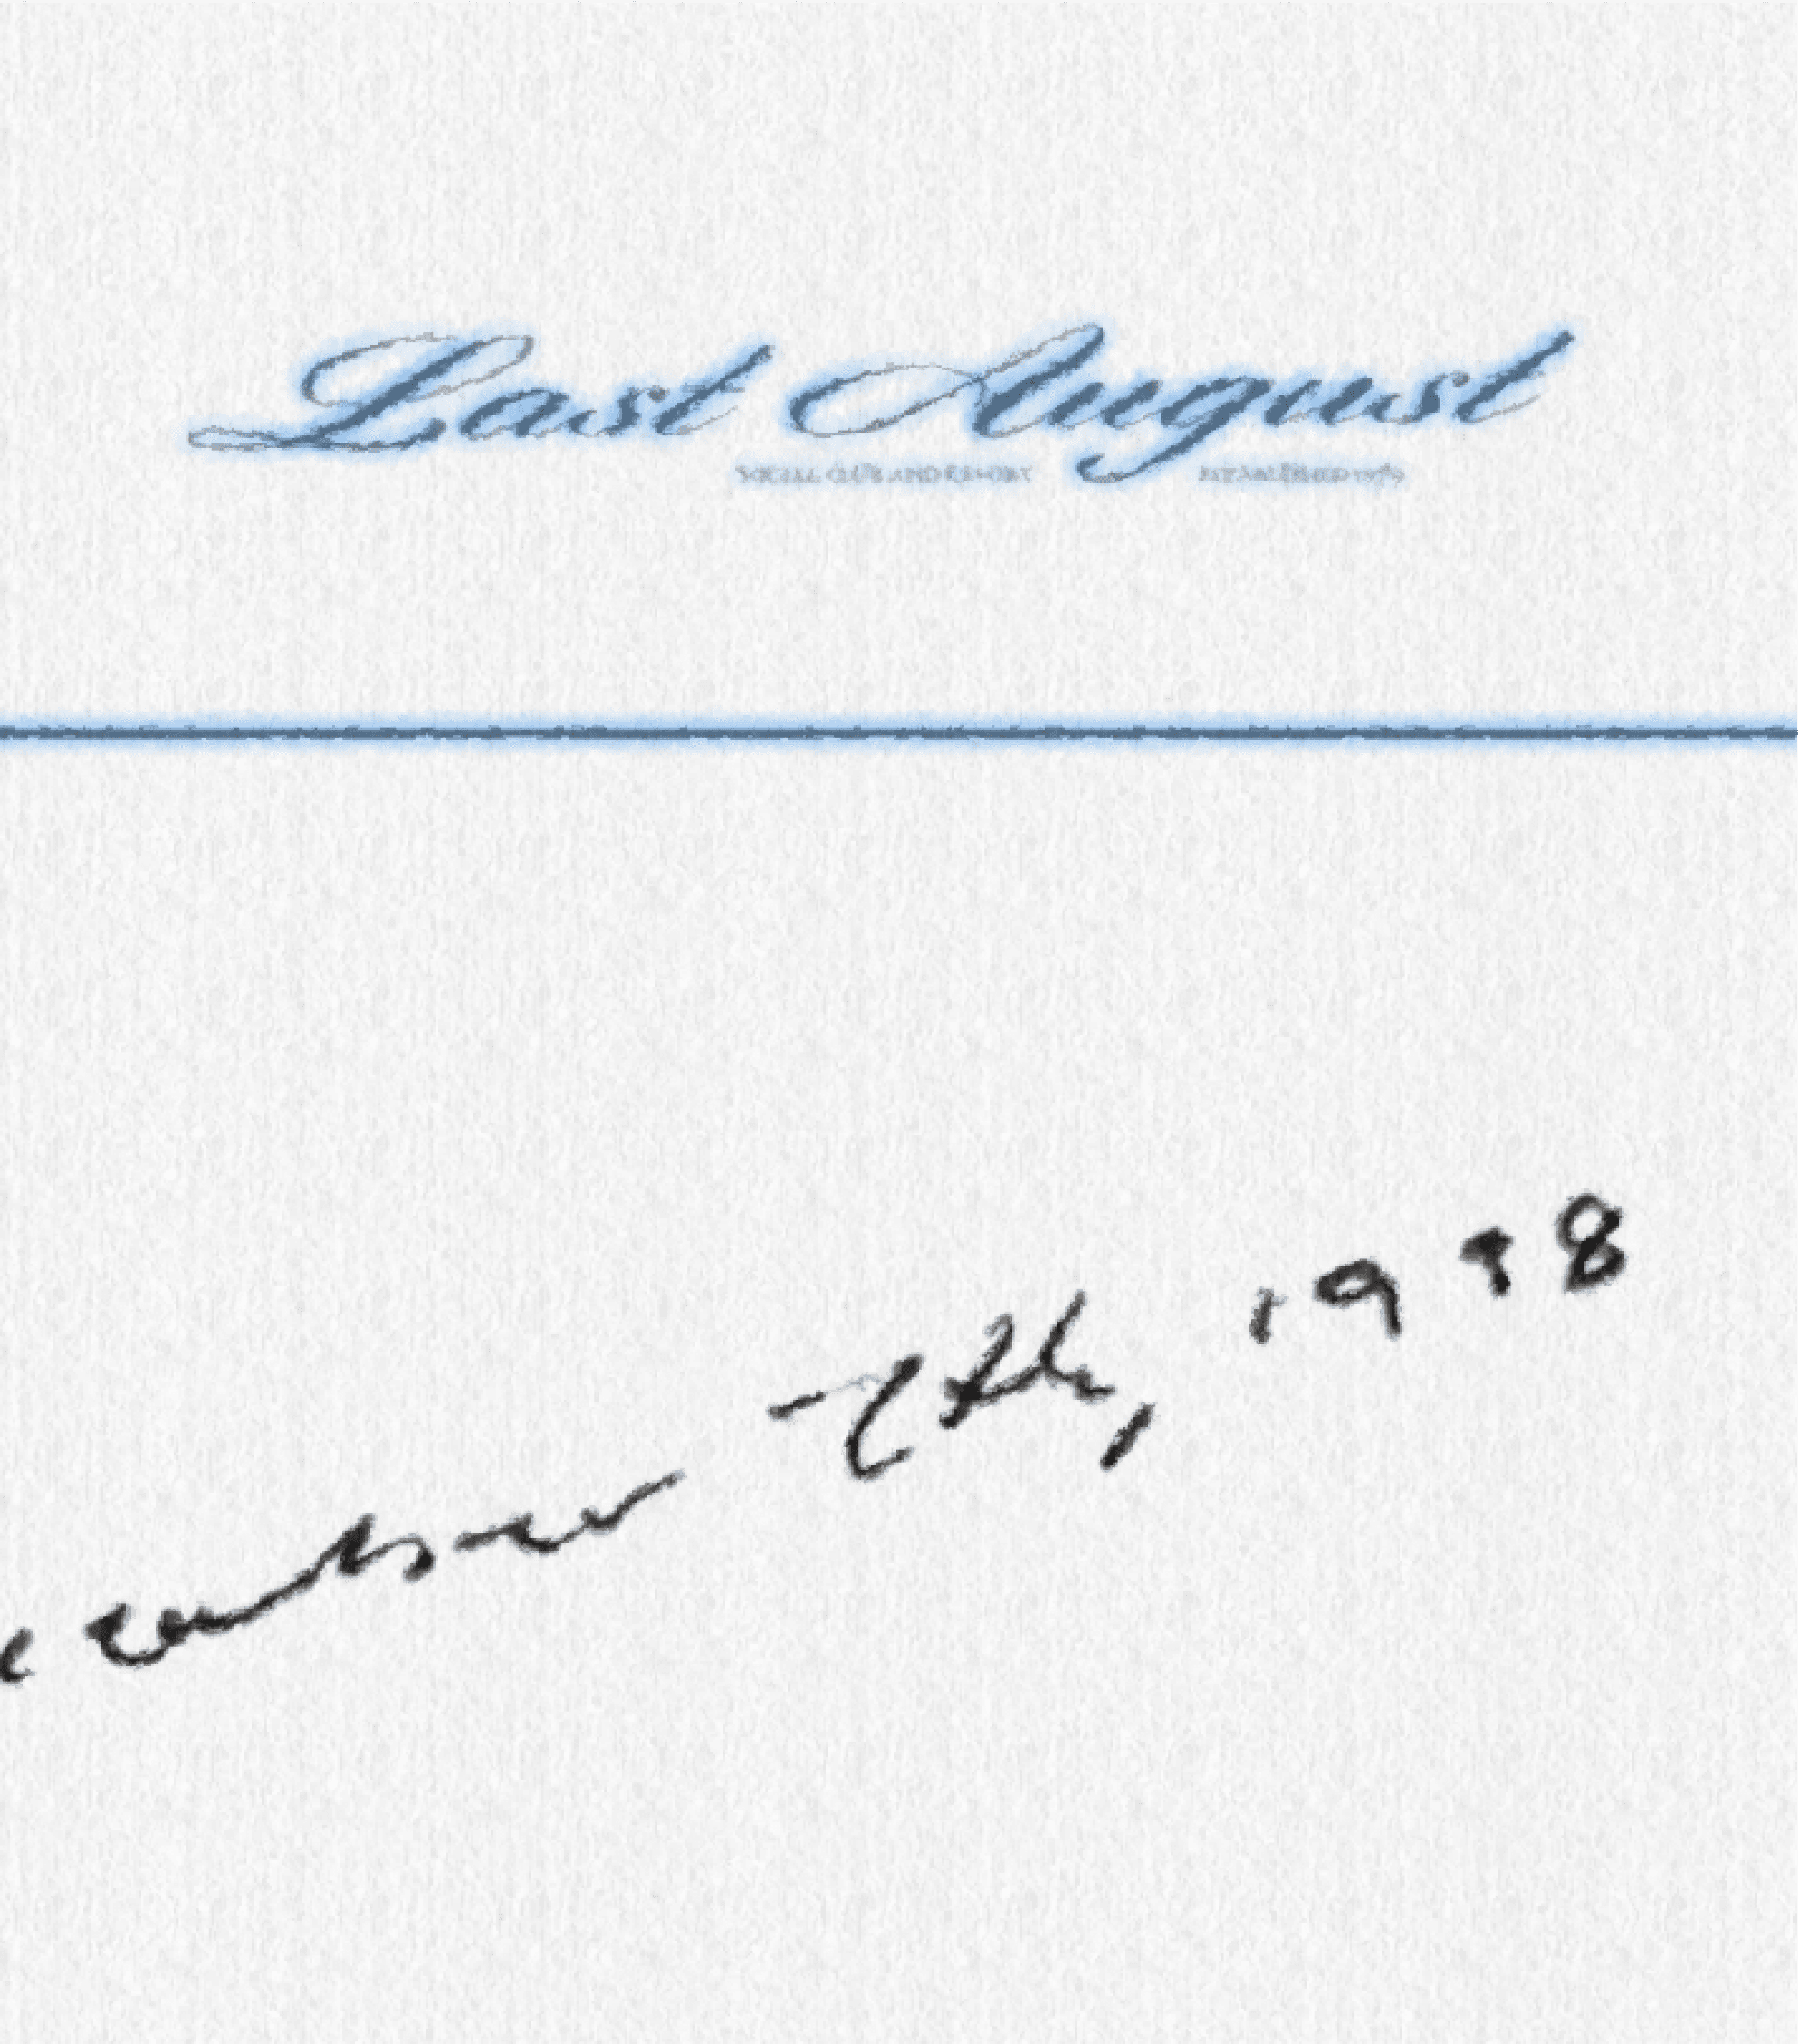 Last August
SOCIAL CLUB AND RESORT ESTABLISHED 1979
7th, 1998